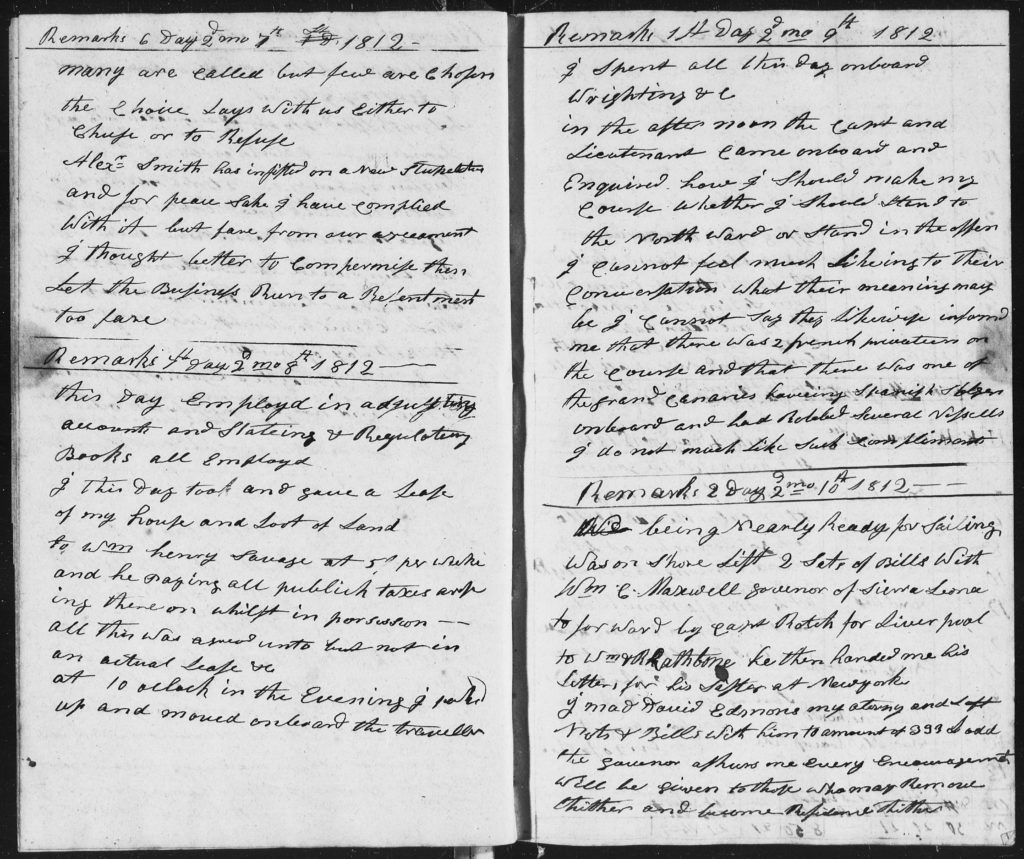 Remarks 6 Day 2d mo 7th 1812
many are Called but few are Chosen
the Choice Lays With us Either to
Chuse or to Refuse
Alexr Smith has insisted on a New
and for peace Sake I have Complied
With it but fare from our agreement
I thought better to Compermise then
Let the Business Run to a Resentment
too fare
Remarks 7th Day 2d mo 8th 1812
this Day Employd in adjusting
accounts and Stateing & Regulating
Books all Employd
I This Day took and gave a Lease
of my house and Loot of Land
to Wm henry Savage at 5s per weeke
and he Paying all publick taxes aris
ing there on whilst in porsesson
all this was agreed unto but not in
an actual Lease &c
at 10 oClock in the Evening I packd
up and moved onboard the traveller
Remark 1st Day 2d mo 9th 1812
I Spent all this day onboard
Wrighting & C
in the after noon the Capt and
Lieutenant Came onboard and
Enquired how I Should make my
Course Whether I Should Stand to
the North Ward or Stand in the offen
I Cannot feel much Likeing to their
Conversation What their meening may
be I Cannot Say they Likewise informd
me that there Was 2 french privateers on
the Course and that there Was one of
the grand Canaries haveing Spanish
onboard and had Robbed Several Vessells
I do not much Like Such Compliments
Remarks 2 Day 2d mo 10th 1812
being Nearly Ready for Sailing
Was on Shore Left 2 Sets of Bills With
Wm C. Maxwell governor of Sierra Leona
to for Ward by Capt Rotch for Liverpool
to Wm & R Rathbone he then handed me his
Letters for his Sister at Newyork
I mad David Edmons my aterny and Left
Nots & Bills With him to amount of 393
the governor ashurs me Every Encouragement
Will be given to those Who may Remove
thither and become Residence thither